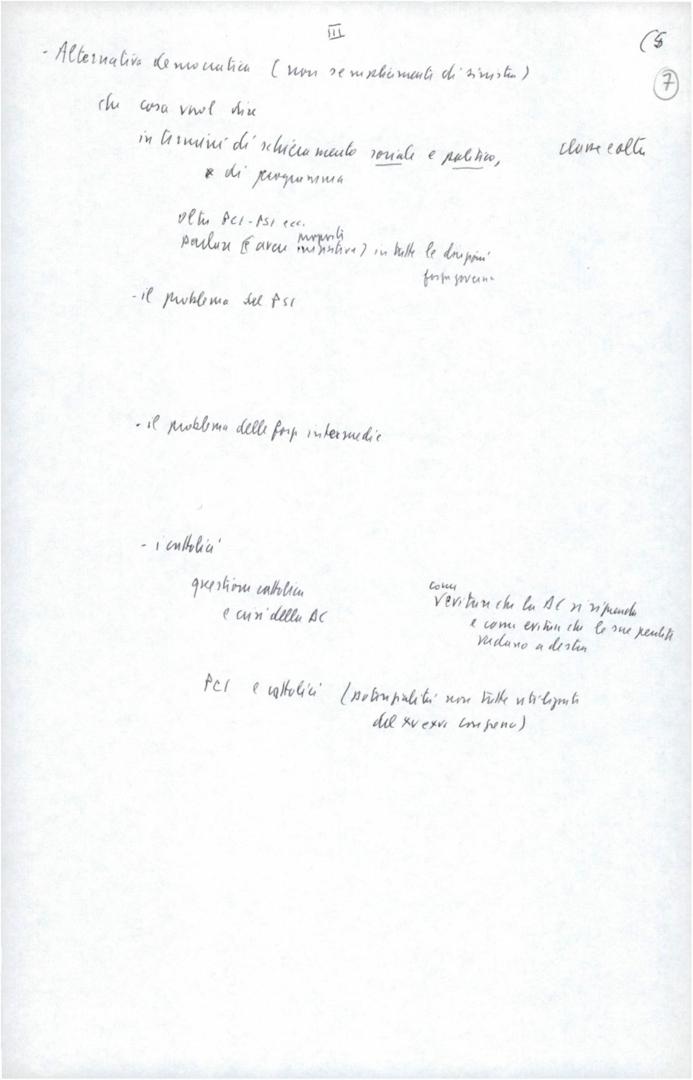 III
(5
7
- Alternativa democratica (non semplicemente di sinistra)
che cosa vuol dire
in termini di schieramento sociale e politico,
classe e altre
di programma
oltre PCI-PSI ecc.
proposte
parlare (e avere iniziativa) in tutte le direzioni
forze governo
- il problema del PSI
- il problema delle forze intermedie
- i cattolici
questione cattolica
e crisi della DC
come
evitare che la DC si riprenda
e come evitare che le sue perdite
vadano a destra
PCI e cattolici (potenzialità non tutte utilizzate
del XV e XVI congresso)